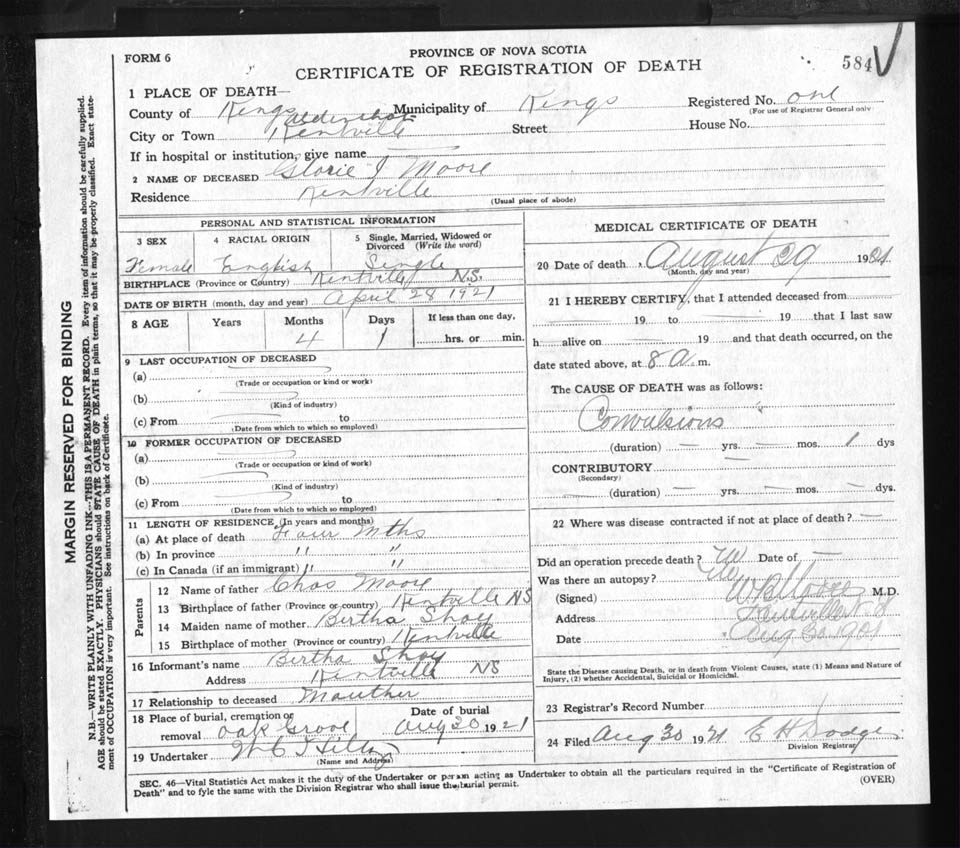 FORM 6
PROVINCE OF NOVA SCOTIA
CERTIFICATE OF REGISTRATION OF DEATH
584
1 PLACE OF DEATH—
County of Kings Municipality of Kings Registered No. one
(For use of Registrar General only
Aldershot
City or Town Kentville Street House No.
If in hospital or institution, give name
2 NAME OF DECEASED Glorie J Moore
Residence Kentville
(Usual place of abode)
PERSONAL AND STATISTICAL INFORMATION
3 SEX 4 RACIAL ORIGIN 5 Single, Married, Widowed or Divorced (Write the word)
Female English Single
BIRTHPLACE (Province or Country) Kentville N.S.
DATE OF BIRTH (month, day and year) April 28 1921
8 AGE Years Months Days If less than one day,
4 1 hrs. or min.
9 LAST OCCUPATION OF DECEASED
(a)
(Trade or occupation or kind or work)
(b)
(Kind of industry)
(c) From to
(Date from which to which so employed)
10 FORMER OCCUPATION OF DECEASED
(a)
(Trade or occupation or kind of work)
(b)
(Kind of industry)
(c) From to
(Date from which to which so employed)
11 LENGTH OF RESIDENCE (In years and months)
(a) At place of death Four Mths
(b) In province " "
(c) In Canada (if an immigrant) " "
Parents
12 Name of father Chas Moore
13 Birthplace of father (Province or country) Kentville NS
14 Maiden name of mother Bertha Shay
15 Birthplace of mother (Province or country) Kentville
16 Informant's name Bertha Shay
Address Kentville NS
17 Relationship to deceased Mauther
18 Place of burial, cremation or removal Oak Grove Date of burial Aug 30 1921
19 Undertaker W C
(Name and Address)
MEDICAL CERTIFICATE OF DEATH
20 Date of death August 29 192
(Month, day and year)
21 I HEREBY CERTIFY, that I attended deceased from
19 to 19 that I last saw
h alive on 19 and that death occurred, on the
date stated above, at 8 a. m.
The CAUSE OF DEATH was as follows:
Convulsions
(duration) — yrs. — mos. 1 dys
CONTRIBUTORY —
(Secondary)
(duration) — yrs. — mos. — dys.
22 Where was disease contracted if not at place of death? —
Did an operation precede death? Date of —
Was there an autopsy?
(Signed) M.D.
Address
Date
State the Disease causing Death, or in death from Violent Causes, state (1) Means and Nature of
Injury, (2) whether Accidental, Suicidal or Homicidal.
23 Registrar's Record Number
24 Filed Aug 30 1921 E H Dodge
Division Registrar
SEC. 46—Vital Statistics Act makes it the duty of the Undertaker or person acting as Undertaker to obtain all the particulars required in the "Certificate of Registration of
Death" and to fyle the same with the Division Registrar who shall issue the burial permit.
(OVER)
MARGIN RESERVED FOR BINDING
N.B.—WRITE PLAINLY WITH UNFADING INK—THIS IS A PERMANENT RECORD. Every item of information should be carefully supplied.
AGE should be stated EXACTLY. PHYSICIANS should STATE CAUSE OF DEATH in plain terms, so that it may be properly classified. Exact state-
ment of OCCUPATION is very important. See instructions on back of Certificate.